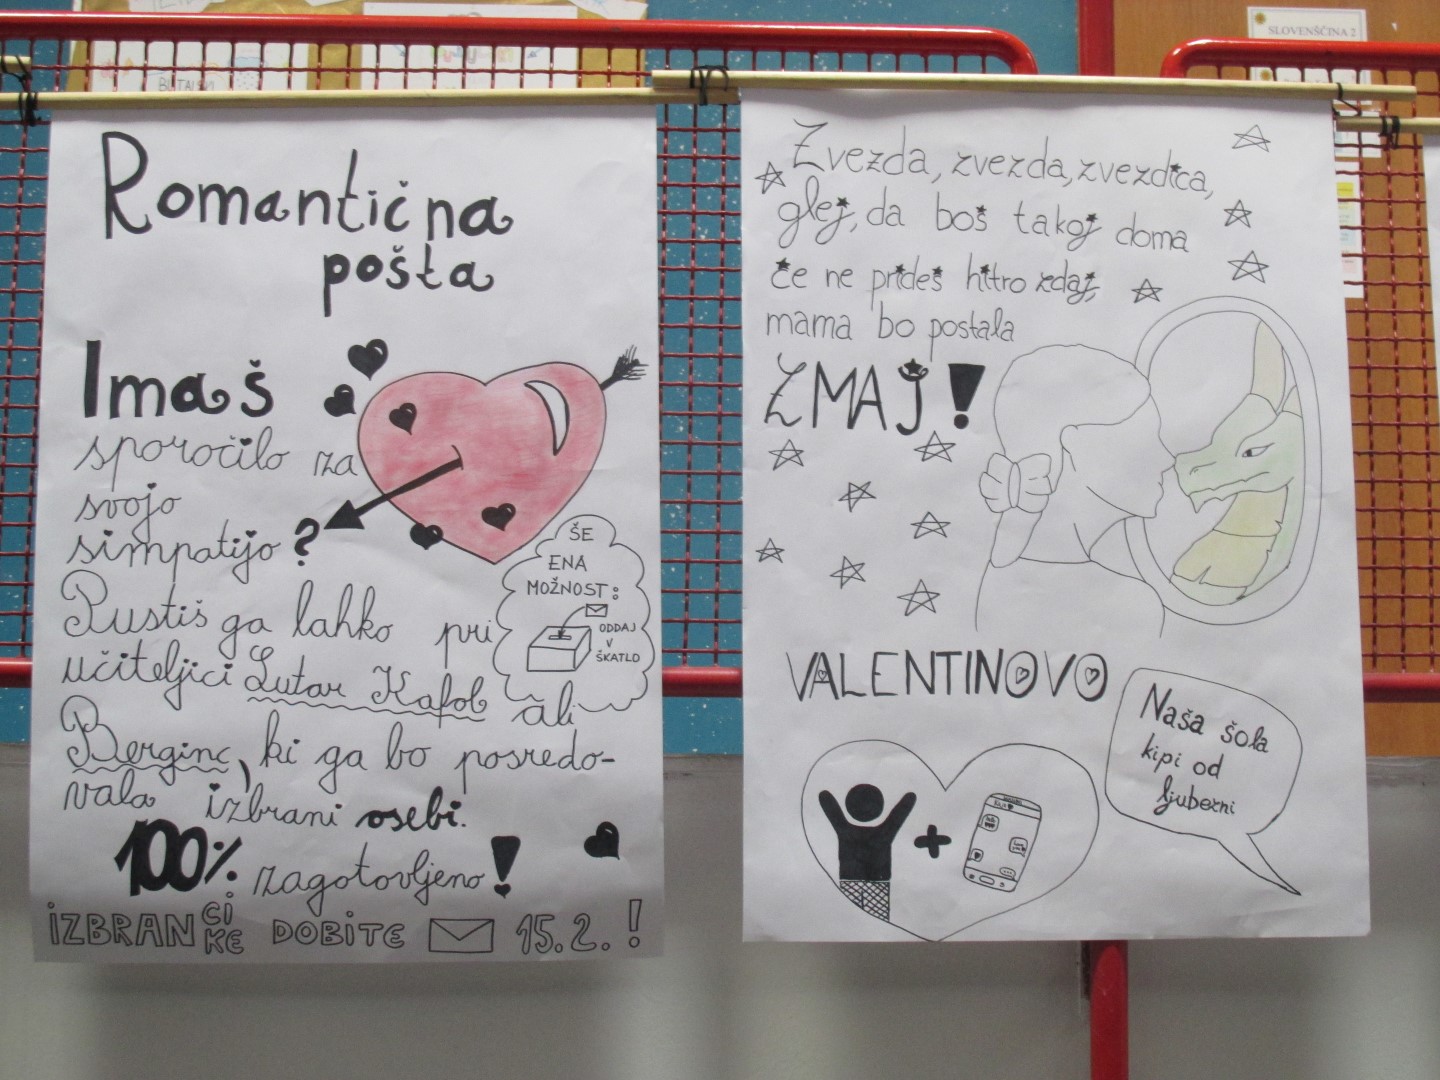 SLOVENŠČINA 2
BUTALSKI
Romantična
pošta
Imaš
sporočilo za
svojo
simpatijo?
Pustiš ga lahko pri
učiteljici Lutar Kafol ali
Berginc, ki ga bo posredo-
vala izbrani osebi.
100% zagotovljeno!
ŠE
ENA
MOŽNOST:
ODDAJ
V
ŠKATLO
IZBRANCI
KE DOBITE 15.2.!
Zvezda, zvezda, zvezdica,
glej, da boš takoj doma
če ne prideš hitro zdaj,
mama bo postala
ZMAJ!
VALENTINOVO
Naša šola
kipi od
ljubezni
+